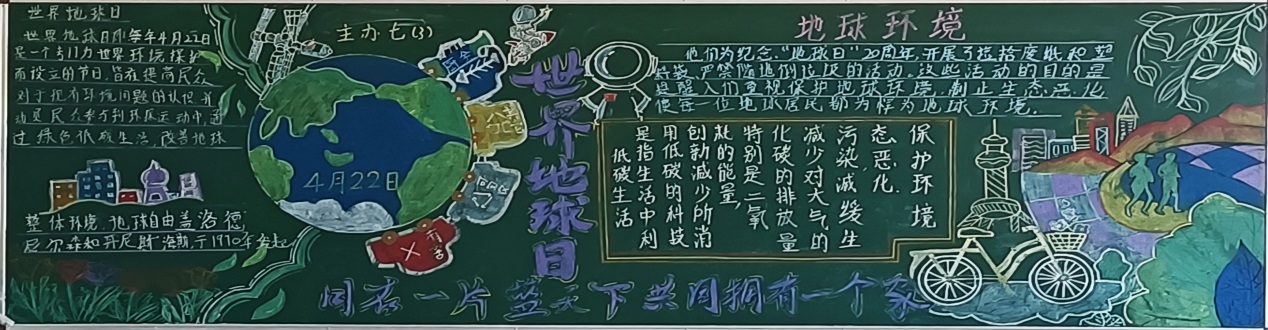 世界地球日
世界地球日即每年4月22日
是一个专门为世界环境保护
而设立的节日,旨在提高民众
对于现有环境问题的认识,并
动员民众参与到环保运动中,通
过绿色低碳生活,改善地球
整体环境。地球日由盖洛德
尼尔森和丹尼斯·海斯于1970年发起
主办七(3)
4月22日
有害
世界地球日
地球环境
他们为纪念“地球日”20周年,开展了
严禁随地倒垃圾的活动。这些活动的目的是
提醒人们重视保护地球环境,制止生态恶化,
使每一位地球居民都为
地球环境。
低碳生活
是指生活中利
用低碳的科技
创新减少所消
耗的能量,
特别是二氧
化碳的排放量
减少对大气的
污染,减缓生
态恶化,
保护环境
同在一片蓝天下共同拥有一个家